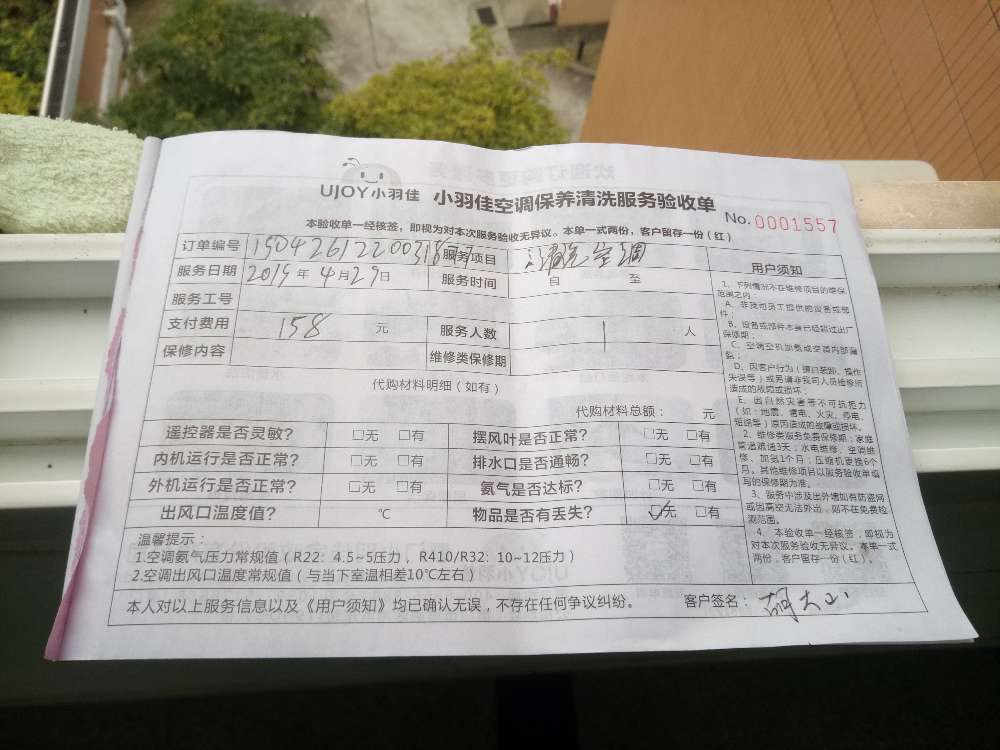 UJOY小羽佳 小羽佳空调保养清洗服务验收单
No.0001557
本验收单一经核签，即视为对本次服务验收无异议。本单一式两份，客户留存一份（红）
订单编号 服务项目 清洗空调
服务日期 2019年4月29日 服务时间 自 至
服务工号
支付费用 158 元 服务人数 1 人
保修内容 维修类保修期
代购材料明细（如有）
代购材料总额： 元
遥控器是否灵敏？ □无 □有 摆风叶是否正常？ □无 □有
内机运行是否正常？ □无 □有 排水口是否通畅？ □无 □有
外机运行是否正常？ □无 □有 氨气是否达标？ □无 □有
出风口温度值？ ℃ 物品是否有丢失？ ☑无 □有
温馨提示：
1.空调氨气压力常规值（R22: 4.5~5压力，R410/R32: 10~12压力）
2.空调出风口温度常规值（与当下室温相差10℃左右）
本人对以上服务信息以及《用户须知》均已确认无误，不存在任何争议纠纷。 客户签名：
用户须知
1、下列情况不在维修项目的维保
范围之内：
A、非我司员工提供的设备或部
件；
B、设备或部件本身已经超过出厂
保修期；
C、空调空机加氨或空调内部漏
氨；
D、因客户行为（擅自装卸、操作
失误等）或另请非我司人员维修所
造成的故障或损坏；
E、因自然灾害等不可抗拒力
（如：地震、雷电、火灾、停电、
短路等）原因造成的故障或损坏。
2、维修类服务免费保修期：家庭
管道疏通3天；水电维修、空调维
修、加氨1个月；压缩机更换6个
月。其他维修项目以服务验收单填
写的保修期为准。
3、服务中涉及出外墙如有防盗网
或因高空无法外出，则不在免费检
测范围。
4、本验收单一经核签，即视为
对本次服务验收无异议。本单一式
两份，客户留存一份（红）。